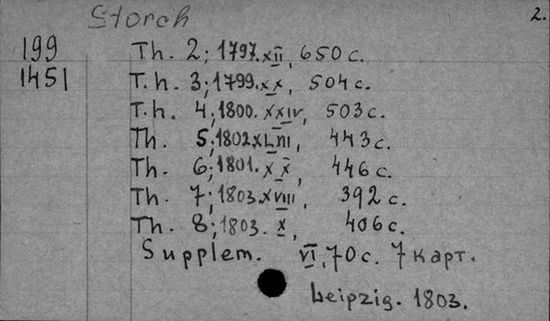 Storch 2.
199 Th. 2; 1797. XII, 650 с.
1451 T.h. 3; 1799. XX, 504 с.
T.h. 4; 1800. XXIV, 503 с.
Th. 5; 1802 XLIII, 443 с.
Th. 6; 1801. XX, 446 с.
Th. 7; 1803. XVIII, 392 с.
Th. 8; 1803. X, 406 с.
Supplem. VI, 70 с. 7 карт.
Leipzig. 1803.